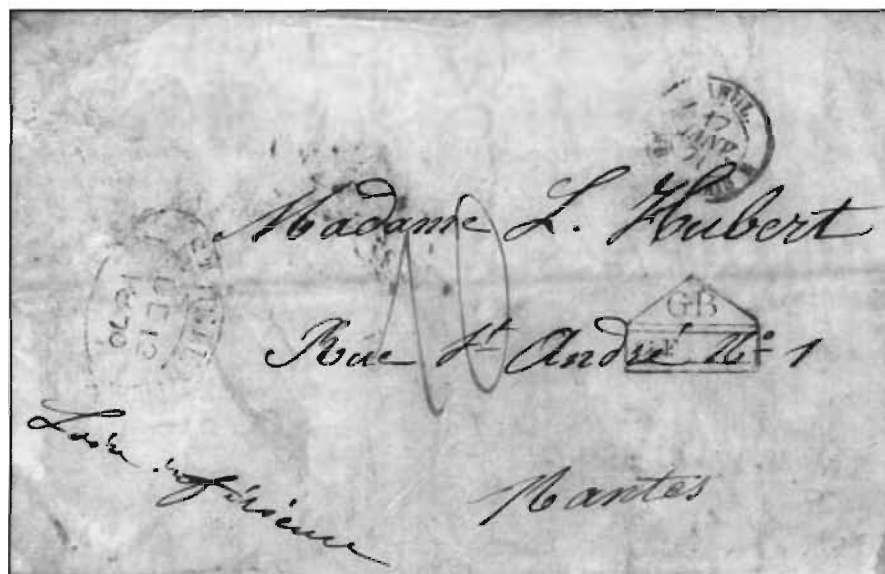 ANGL.
17
JANV
71
Madame L. Hubert
10
GB
Rue St André No 1
DE 12
1870
Loire inférieure
Nantes